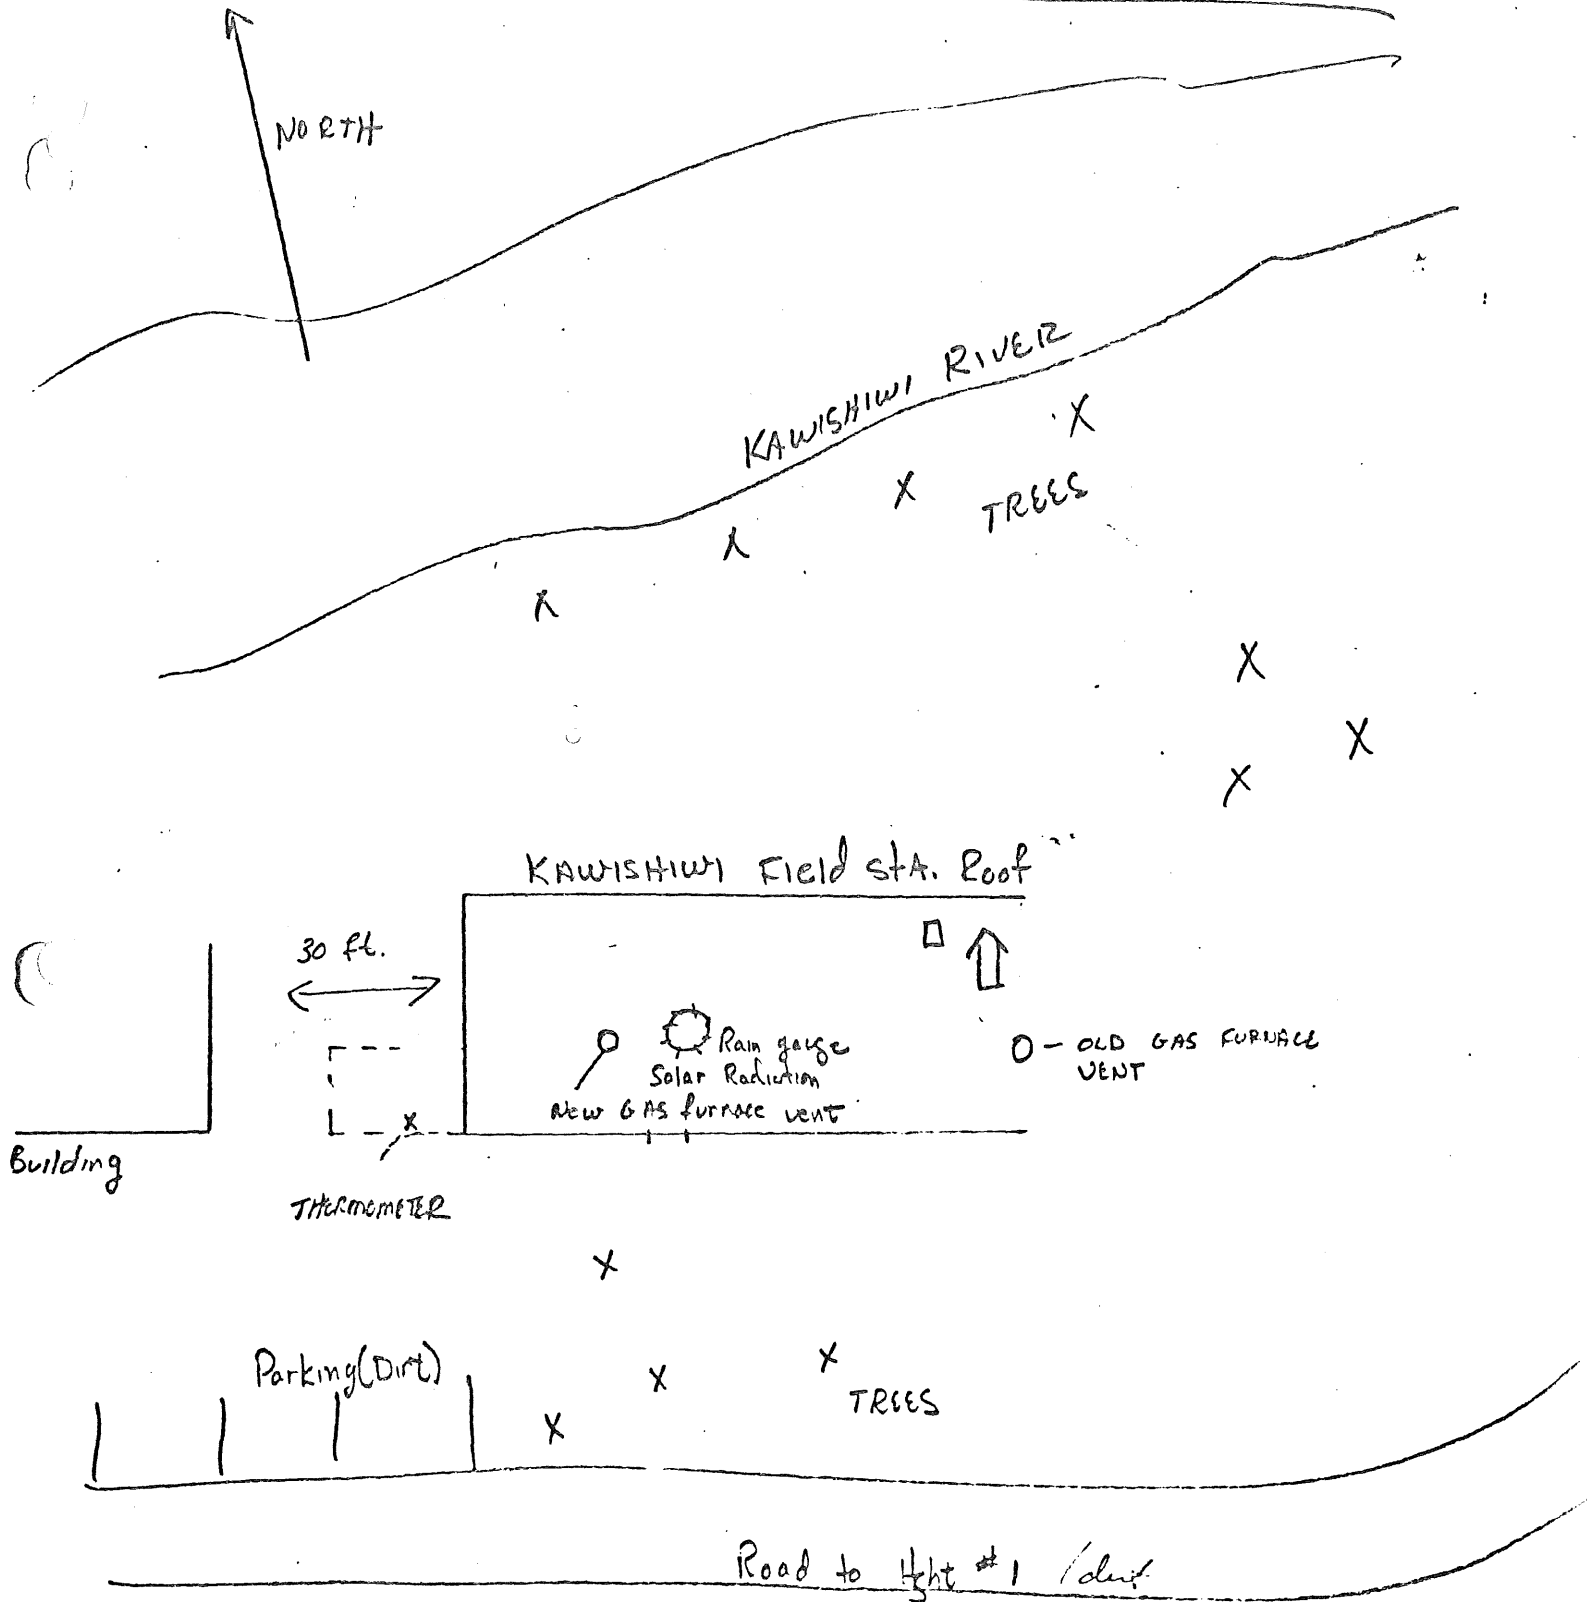 NORTH
KAWISHIWI RIVER
TREES
KAWISHIWI Field StA. Roof
30 ft.
Rain gauge
Solar Radiation
New GAS furnace vent
O - OLD GAS FURNACE
VENT
Building
THERMOMETER
Parking (Dirt)
TREES
Road to # 1